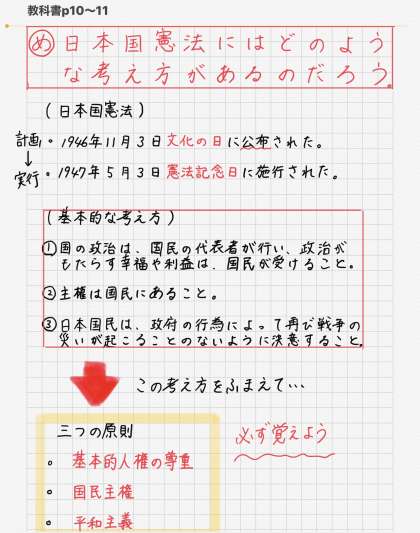 教科書p10〜11
め 日本国憲法にはどのよう
な考え方があるのだろう。
(日本国憲法)
計画 ・1946年11月3日文化の日に公布された。
↓
実行 ・1947年5月3日憲法記念日に施行された。
(基本的な考え方)
①国の政治は、国民の代表者が行い、政治が
もたらす幸福や利益は、国民が受けること。
②主権は国民にあること。
③日本国民は、政府の行為によって再び戦争の
災いが起こることのないように決意すること。
この考え方をふまえて…
三つの原則
。基本的人権の尊重
必ず覚えよう
。国民主権
。平和主義